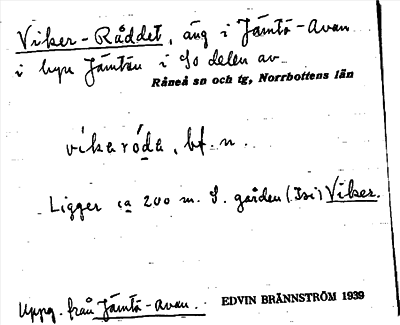 Viker-Råddet, äng i Jämtö-Avan
i byn Jämtön i So delen av
Råneå sn och tg, Norrbottens län
vikaróda, bf. n.
Ligger ca 200 m. S. gården (Isi) Viker.
Uppg. från Jämtö-Avan.
EDVIN BRÄNNSTRÖM 1939